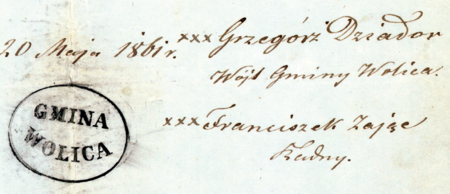 20 Maja 1861 r.
xxx Grzegórz Dziador
Wójt Gminy Wolica.
GMINA
WOLICA
xxx Franciszek Zając
Radny.